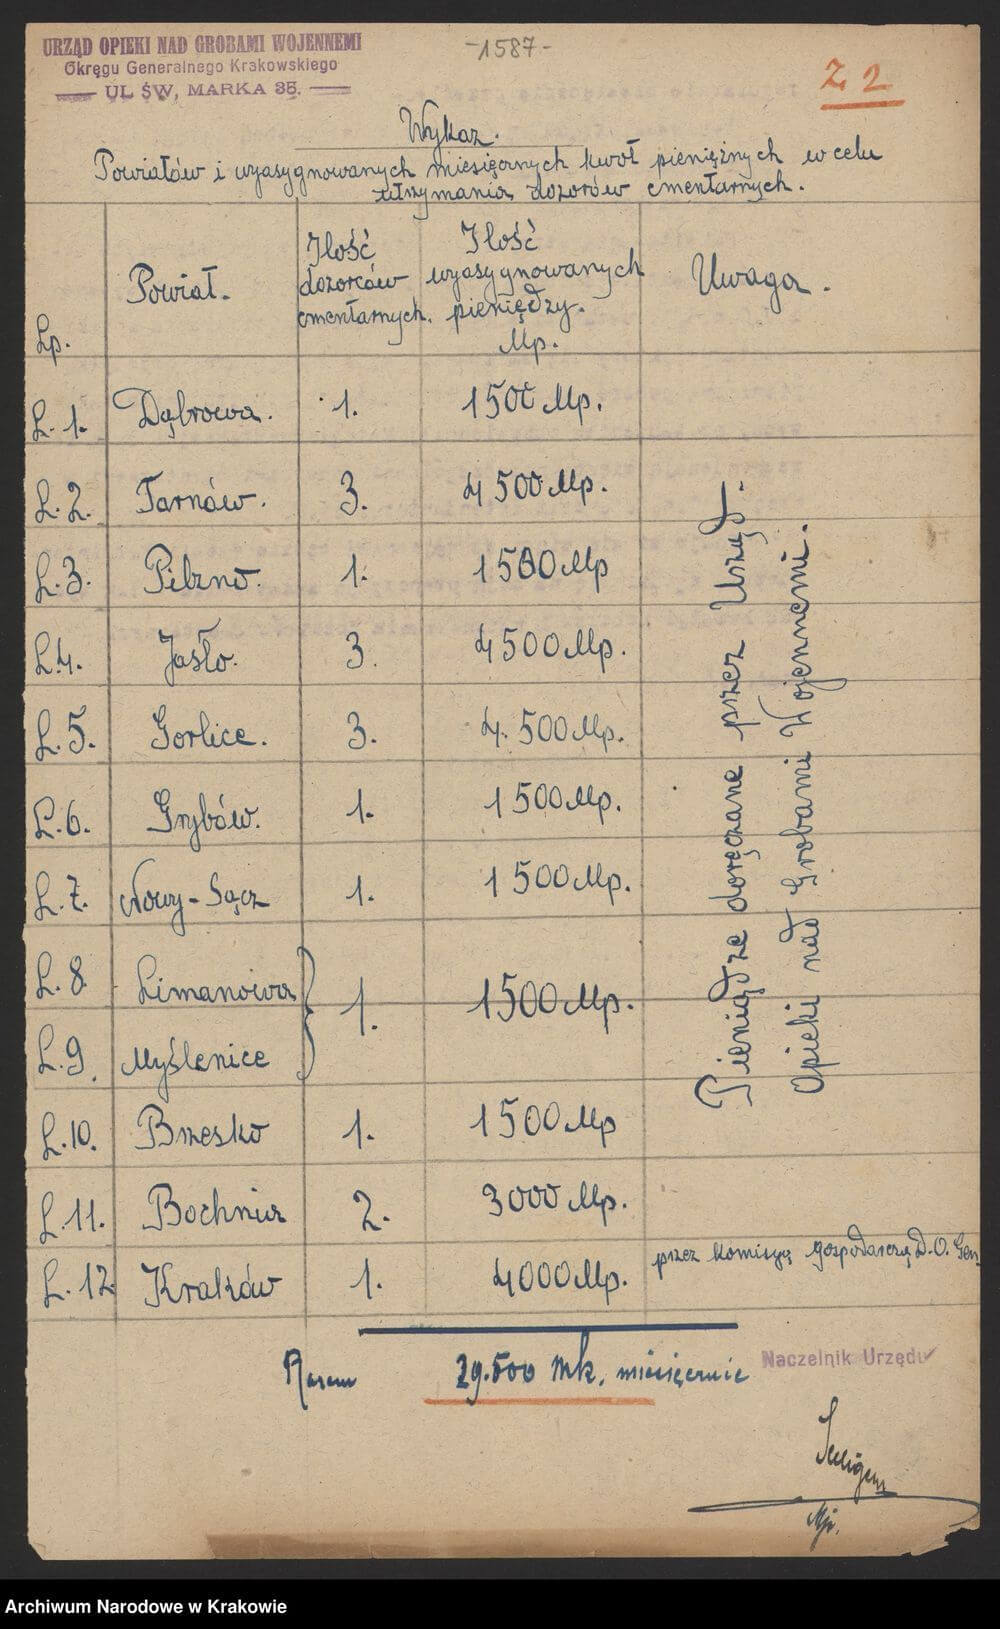 URZĄD OPIEKI NAD GROBAMI WOJENNEMI
Okręgu Generalnego Krakowskiego
UL ŚW, MARKA 35.
-1587-
Z 2
Wykaz.
Powiatów i wyasygnowanych miesięcznych kwot pieniężnych w celu
utrzymania dozorów cmentarnych.
Lp. Powiat. Ilość dozorców cmentarnych. Ilość wyasygnowanych pieniędzy. Mp. Uwaga.
L. 1. Dąbrowa. 1. 1500 Mp.
L. 2. Tarnów. 3. 4500 Mp.
L. 3. Pilzno. 1. 1500 Mp
L. 4. Jasło. 3. 4500 Mp.
L. 5. Gorlice. 3. 4.500 Mp.
L. 6. Grybów. 1. 1500 Mp.
L. 7. Nowy-Sącz 1. 1500 Mp.
L. 8 Limanowa
1. 1500 Mp.
L. 9. Myślenice
L. 10. Brzesko 1. 1500 Mp
L. 11. Bochnia 2. 3000 Mp.
L. 12 Kraków 1. 4000 Mp. przez komisyę gospodarczą D.O. Gen.
Pieniądze doręczane przez Urząd.
Opieki nad Grobami Wojennemi.
Razem 29.500 Mk. miesięcznie
Naczelnik Urzędu
Mjr.
Archiwum Narodowe w Krakowie